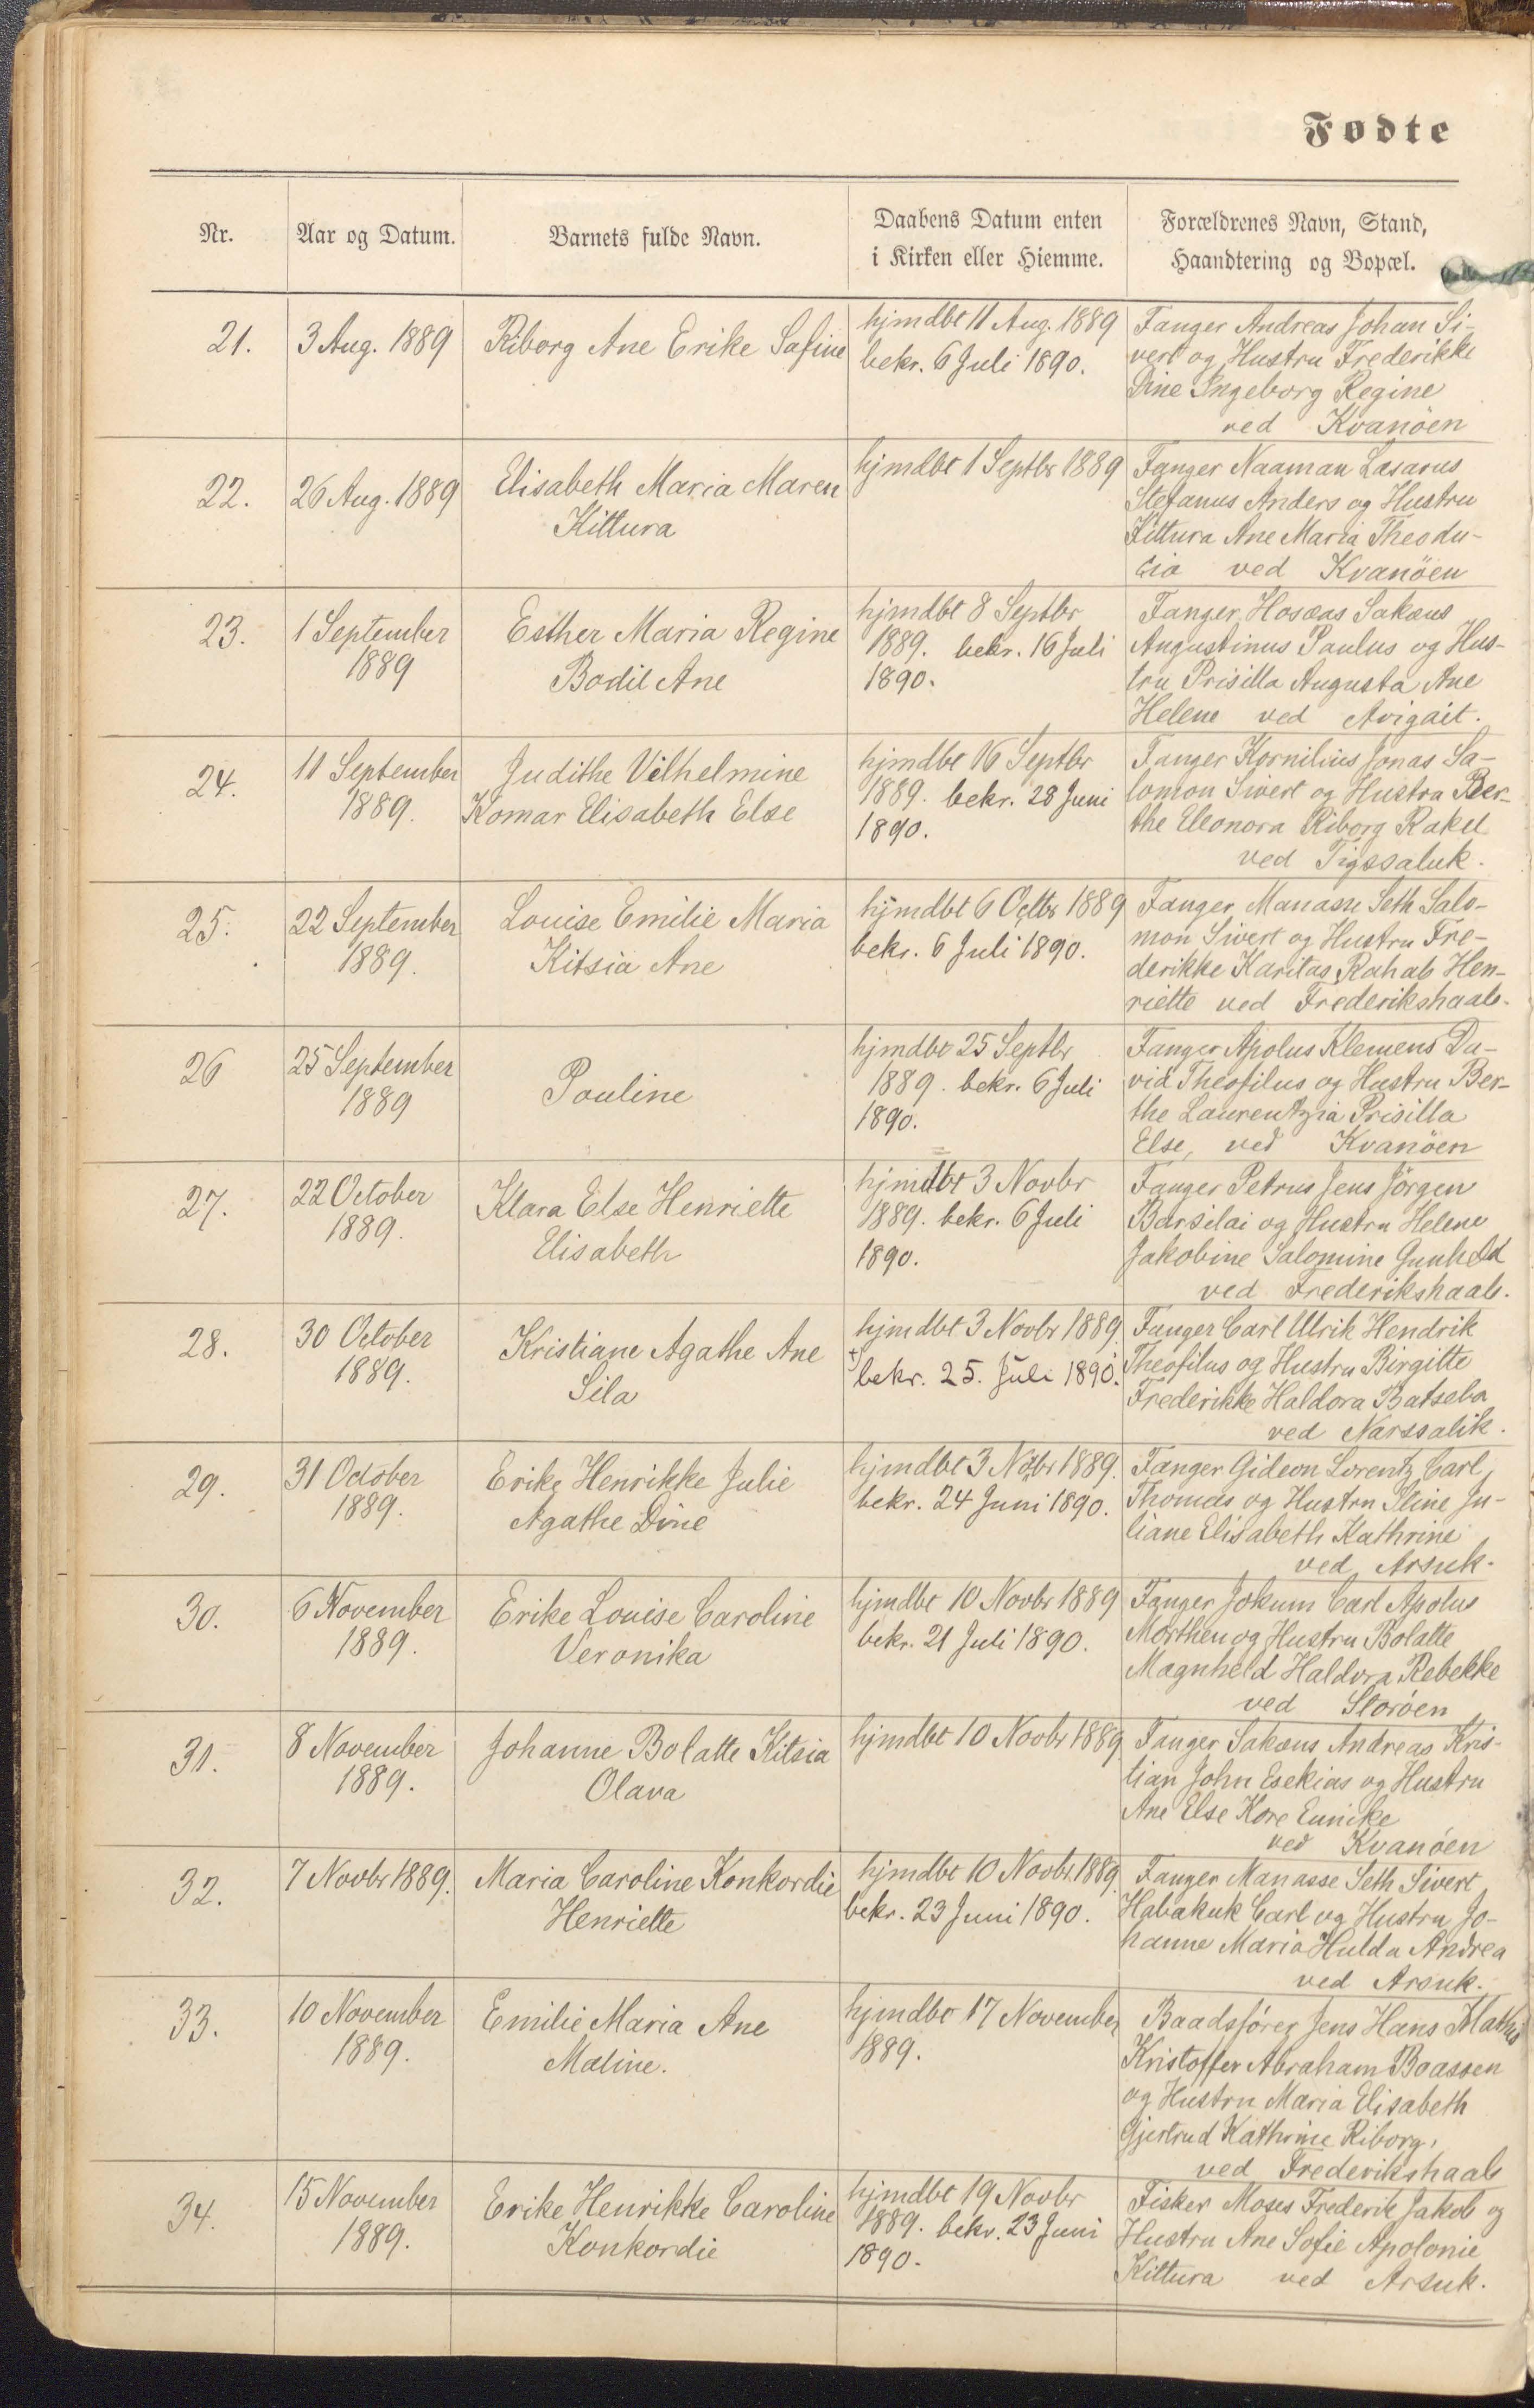 Fødte
Nr.
Aar og Datum.
Barnets fulde Navn.
Daabens Datum enten
i Kirken eller Hiemme.
Forældrenes Navn, Stand,
Haandtering og Bopæl.
21.
3 Aug. 1889
Riborg Ane Erike Safine
hjmdbt 11 Aug. 1889
bekr. 6 Juli 1890.
Fanger Andreas Johan Si-
vert og Hustru Frederikke
Dine Ingeborg Regine
ved Kvanöen
22.
26 Aug. 1889
Elisabeth Maria Maren
Kittura
hjmdbt 1 Septbr 1889
Fanger Naaman Lasarus
Stefanus Anders og Hustru
Kittura Ane Maria Theodu-
sia ved Kvanöen
23.
1 September
1889
Esther Maria Regine
Bodil Ane
hjmdbt 8 Septbr
1889. bekr. 16 Juli
1890.
Fanger Hosæas Sakæus
Augustinus Paulus og Hus-
tru Prisilla Augusta Ane
Helene ved Avigait.
24.
11 September
1889.
Judithe Vilhelmine
Komar Elisabeth Else
hjmdbt 16 Septbr
1889. bekr. 28 Juni
1890.
Fanger Kornilius Jonas Sa-
lomon Sivert og Hustru Ber-
the Eleonora Riborg Rakel
ved Tigssaluk.
25.
22 September
1889.
Louise Emilie Maria
Kitsia Ane
hjmdbt 6 Octbr 1889
bekr. 6 Juli 1890.
Fanger Manasse Seth Salo-
mon Sivert og Hustru Fre-
derikke Karitas Rahab Hen-
riette ved Frederikshaab.
26
25 September
1889
Pauline
hjmdbt 25 Septbr
1889. bekr. 6 Juli
1890.
Fanger Apolus Klemens Da-
vid Theofilus og Hustru Ber-
the Laurentzia Prisilla
Else, ved Kvanöen
27.
22 October
1889.
Klara Else Henriette
Elisabeth
hjmdbt 3 Novbr
1889. bekr. 6 Juli
1890.
Fanger Petrus Jens Jörgen
Barsilai og Hustru Helene
Jakobine Salomine Gunheld
ved Frederikshaab.
28.
30 October
1889.
Kristiane Agathe Ane
Sila
hjmdbt 3 Novbr 1889.
bekr. 25. Juli 1890.
Fanger Carl Ulrik Hendrik
Theofilus og Hustru Birgitte
Frederikke Haldora Batseba
ved Narssalik.
29.
31 October
1889.
Erike Henrikke Julie
Agathe Dine
hjmdbt 3 Novbr 1889.
bekr. 24 Juni 1890.
Fanger Gideon Lorentz Carl
Thomas og Hustru Stine Ju-
liane Elisabeth Kathrine
ved Arsuk.
30.
6 November
1889.
Erike Louise Caroline
Veronika
hjmdbt 10 Novbr 1889
bekr. 21 Juli 1890.
Fanger Jokum Carl Apolus
Morthen og Hustru Bolatte
Magnheld Haldora Rebekke
ved Storöen
31.
8 November
1889.
Johanne Bolatte Kitsia
Olava
hjmdbt 10 Novbr 1889
Fanger Sakæus Andreas Kris-
tian John Esekias og Hustru
Ane Else Kore Eunike
ved Kvanöen
32.
7 Novbr 1889.
Maria Caroline Konkordie
Henriette
hjmdbt 10 Novbr 1889.
bekr. 23 Juni 1890.
Fanger Manasse Seth Sivert
Habakuk Carl og Hustru Jo-
hanne Maria Hulda Andrea
ved Arsuk.
33.
10 November
1889.
Emilie Maria Ane
Maline.
hjmdbt 17 November
1889.
Baadsfører Jens Hans
Kristoffer Abraham Boassen
og Hustru Maria Elisabeth
Gjertrud Kathrine Riborg,
ved Frederikshaab
34.
15 November
1889.
Erike Henrikke Caroline
Konkordie
hjmdbt 19 Novbr
1889. bekr. 23 Juni
1890.
Fisker Moses Frederik Jakob og
Hustru Ane Sofie Apolonie
Kittura ved Arsuk.